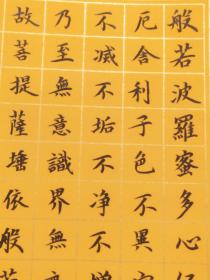 般若波羅蜜多心
厄舍利子色不異
不減不垢不净不
乃至無意識界無
故菩提薩埵依般